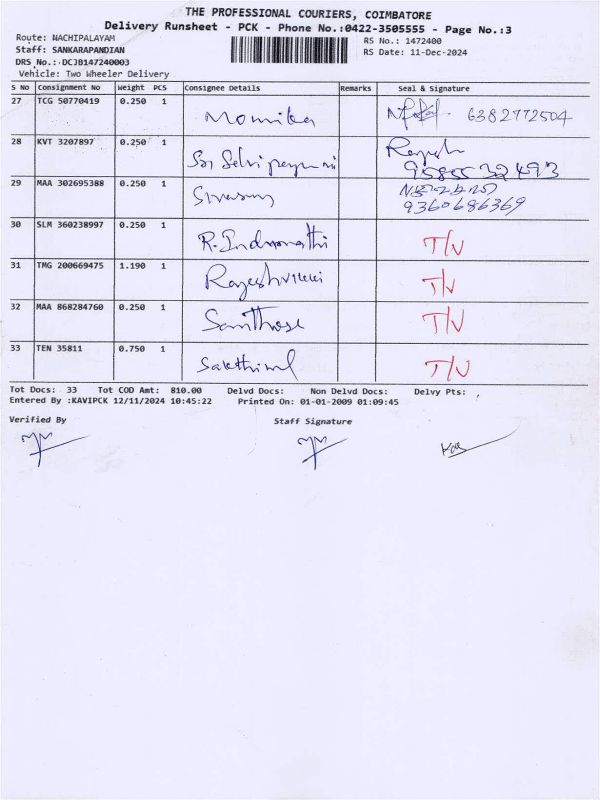 THE PROFESSIONAL COURIERS, COIMBATORE
Delivery Runsheet - PCK - Phone No.:0422-3505555 - Page No.:3
Route: NACHIPALAYAM
RS No.: 1472400
Staff: SANKARAPANDIAN
RS Date: 11-Dec-2024
DRS No.:.DCJB147240003
Vehicle: Two Wheeler Delivery
S No Consignment No Weight PCS Consignee Details Remarks Seal & Signature
27 TCG 50770419 0.250 1 Mounika 6382772504
28 KVT 3207897 0.250 1 Sri Rajesh
9585532493
29 MAA 302695388 0.250 1
9360686369
30 SLM 360238997 0.250 1 R. T/N
31 TMG 200669475 1.190 1 T/N
32 MAA 868284760 0.250 1 Santhose T/N
33 TEN 35811 0.750 1 T/N
Tot Docs: 33 Tot COD Amt: 810.00 Delvd Docs: Non Delvd Docs: Delvy Pts:
Entered By :KAVIPCK 12/11/2024 10:45:22 Printed On: 01-01-2009 01:09:45
Verified By Staff Signature